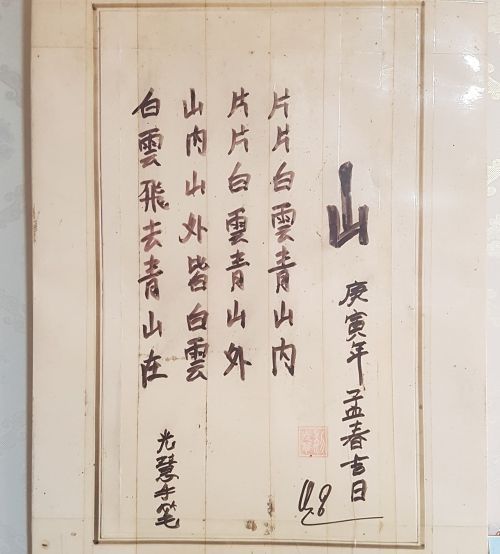 山
庚寅年孟春吉日
片片白雲青山內
片片白雲青山外
山內山外皆白雲
白雲飛去青山在
光慧手筆